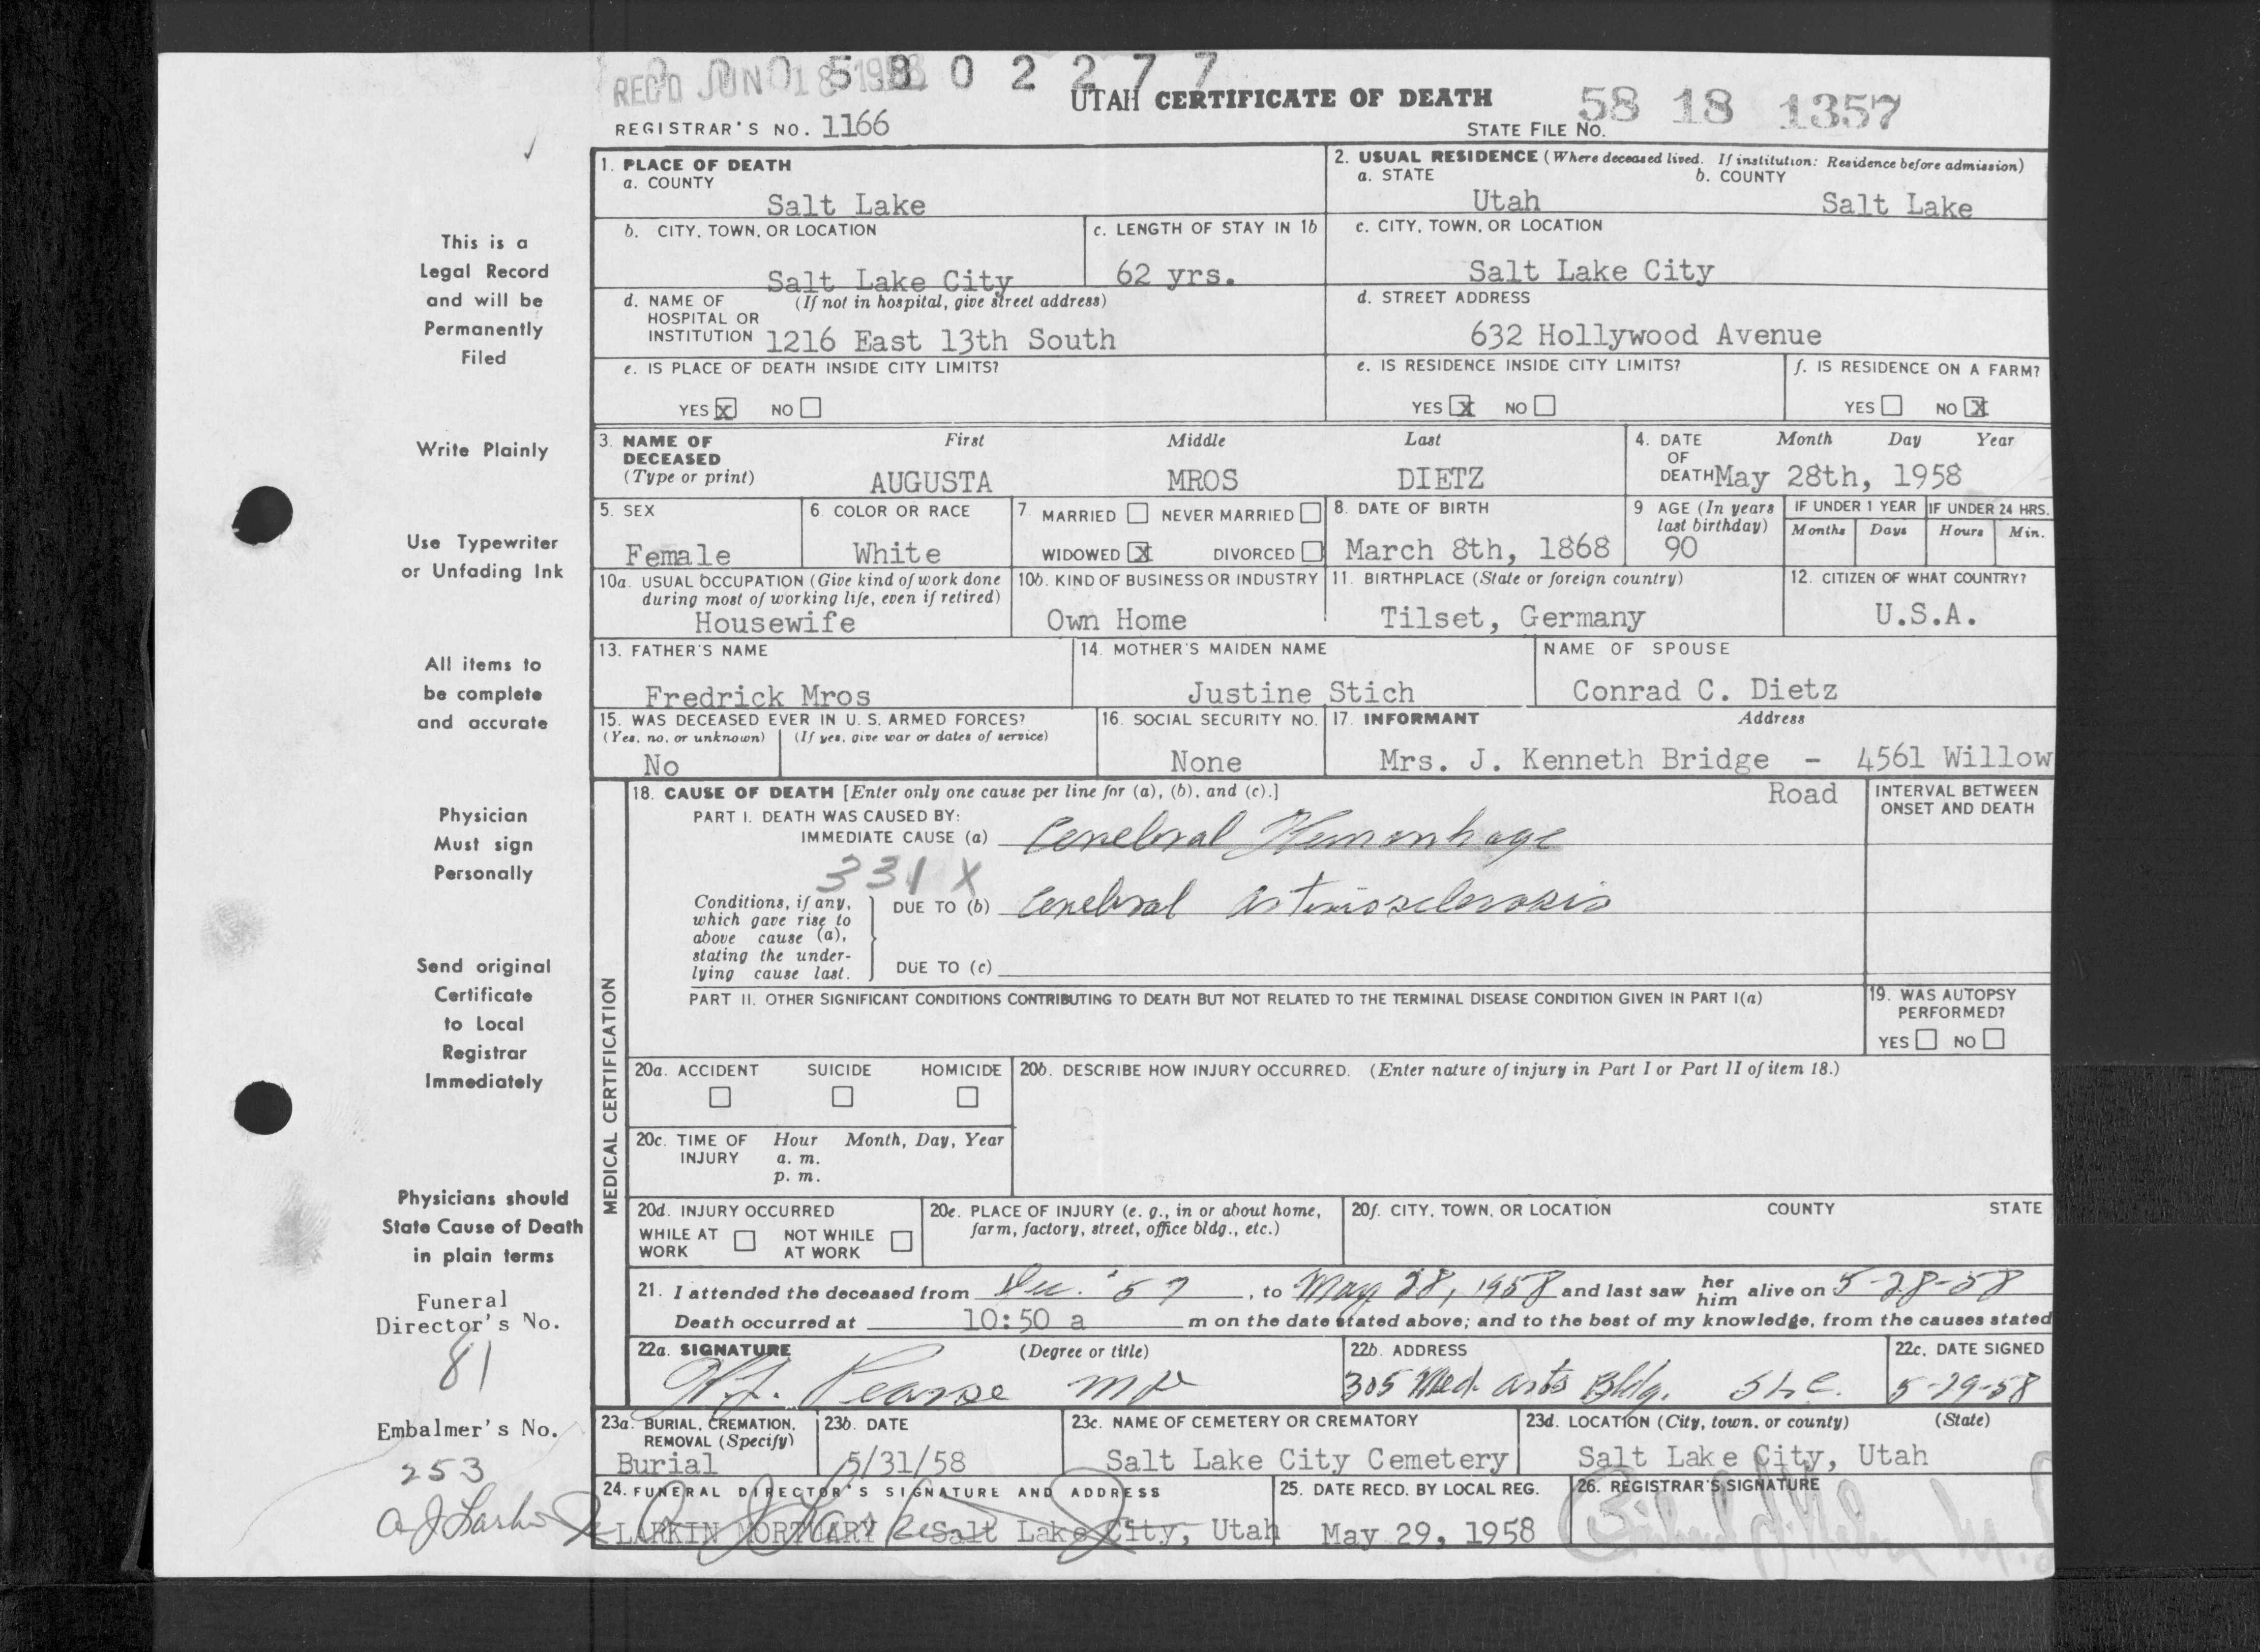 REC'D JUN 18 1958
0 0 0 5 8 0 2 2 7 7
UTAH CERTIFICATE OF DEATH
58 18 1357
REGISTRAR'S NO. 1166
STATE FILE NO.
This is a
Legal Record
and will be
Permanently
Filed
Write Plainly
Use Typewriter
or Unfading Ink
All items to
be complete
and accurate
Physician
Must sign
Personally
Send original
Certificate
to Local
Registrar
Immediately
Physicians should
State Cause of Death
in plain terms
Funeral
Director's No.
81
Embalmer's No.
253
1. PLACE OF DEATH
a. COUNTY
Salt Lake
2. USUAL RESIDENCE (Where deceased lived. If institution: Residence before admission)
a. STATE b. COUNTY
Utah Salt Lake
b. CITY, TOWN, OR LOCATION
Salt Lake City
c. LENGTH OF STAY IN 1b
62 yrs.
c. CITY, TOWN, OR LOCATION
Salt Lake City
d. NAME OF (If not in hospital, give street address)
HOSPITAL OR
INSTITUTION 1216 East 13th South
d. STREET ADDRESS
632 Hollywood Avenue
e. IS PLACE OF DEATH INSIDE CITY LIMITS?
YES X NO
e. IS RESIDENCE INSIDE CITY LIMITS?
YES X NO
f. IS RESIDENCE ON A FARM?
YES NO X
3. NAME OF First Middle Last
DECEASED
(Type or print) AUGUSTA MROS DIETZ
4. DATE Month Day Year
OF
DEATH May 28th, 1958
5. SEX
Female
6. COLOR OR RACE
White
7. MARRIED NEVER MARRIED
WIDOWED X DIVORCED
8. DATE OF BIRTH
March 8th, 1868
9 AGE (In years
last birthday)
90
IF UNDER 1 YEAR IF UNDER 24 HRS.
Months Days Hours Min.
10a. USUAL OCCUPATION (Give kind of work done
during most of working life, even if retired)
Housewife
10b. KIND OF BUSINESS OR INDUSTRY
Own Home
11. BIRTHPLACE (State or foreign country)
Tilset, Germany
12. CITIZEN OF WHAT COUNTRY?
U.S.A.
13. FATHER'S NAME
Fredrick Mros
14. MOTHER'S MAIDEN NAME
Justine Stich
NAME OF SPOUSE
Conrad C. Dietz
15. WAS DECEASED EVER IN U. S. ARMED FORCES?
(Yes, no, or unknown) (If yes, give war or dates of service)
No
16. SOCIAL SECURITY NO.
None
17. INFORMANT Address
Mrs. J. Kenneth Bridge - 4561 Willow
Road
MEDICAL CERTIFICATION
18. CAUSE OF DEATH [Enter only one cause per line for (a), (b), and (c).]
INTERVAL BETWEEN
ONSET AND DEATH
PART I. DEATH WAS CAUSED BY:
IMMEDIATE CAUSE (a) Cerebral Hemorrhage
331 X
Conditions, if any,
which gave rise to
above cause (a),
stating the under-
lying cause last.
DUE TO (b) Cerebral arteriosclerosis
DUE TO (c)
PART II. OTHER SIGNIFICANT CONDITIONS CONTRIBUTING TO DEATH BUT NOT RELATED TO THE TERMINAL DISEASE CONDITION GIVEN IN PART I(a)
19. WAS AUTOPSY
PERFORMED?
YES NO
20a. ACCIDENT SUICIDE HOMICIDE
20b. DESCRIBE HOW INJURY OCCURRED. (Enter nature of injury in Part I or Part II of item 18.)
20c. TIME OF Hour Month, Day, Year
INJURY a. m.
p. m.
20d. INJURY OCCURRED
WHILE AT NOT WHILE
WORK AT WORK
20e. PLACE OF INJURY (e. g., in or about home,
farm, factory, street, office bldg., etc.)
20f. CITY, TOWN, OR LOCATION COUNTY STATE
21. I attended the deceased from Dec. '57, to May 28, 1958 and last saw her him alive on 5-28-58
Death occurred at 10:50 a m on the date stated above; and to the best of my knowledge, from the causes stated
22a. SIGNATURE (Degree or title)
Pearse MD
22b. ADDRESS
305 Med. arts Bldg. SLC.
22c. DATE SIGNED
5-29-58
23a. BURIAL, CREMATION,
REMOVAL (Specify)
Burial
23b. DATE
5/31/58
23c. NAME OF CEMETERY OR CREMATORY
Salt Lake City Cemetery
23d. LOCATION (City, town, or county) (State)
Salt Lake City, Utah
24. FUNERAL DIRECTOR'S SIGNATURE AND ADDRESS
LARKIN MORTUARY Salt Lake City, Utah
25. DATE RECD. BY LOCAL REG.
May 29, 1958
26. REGISTRAR'S SIGNATURE